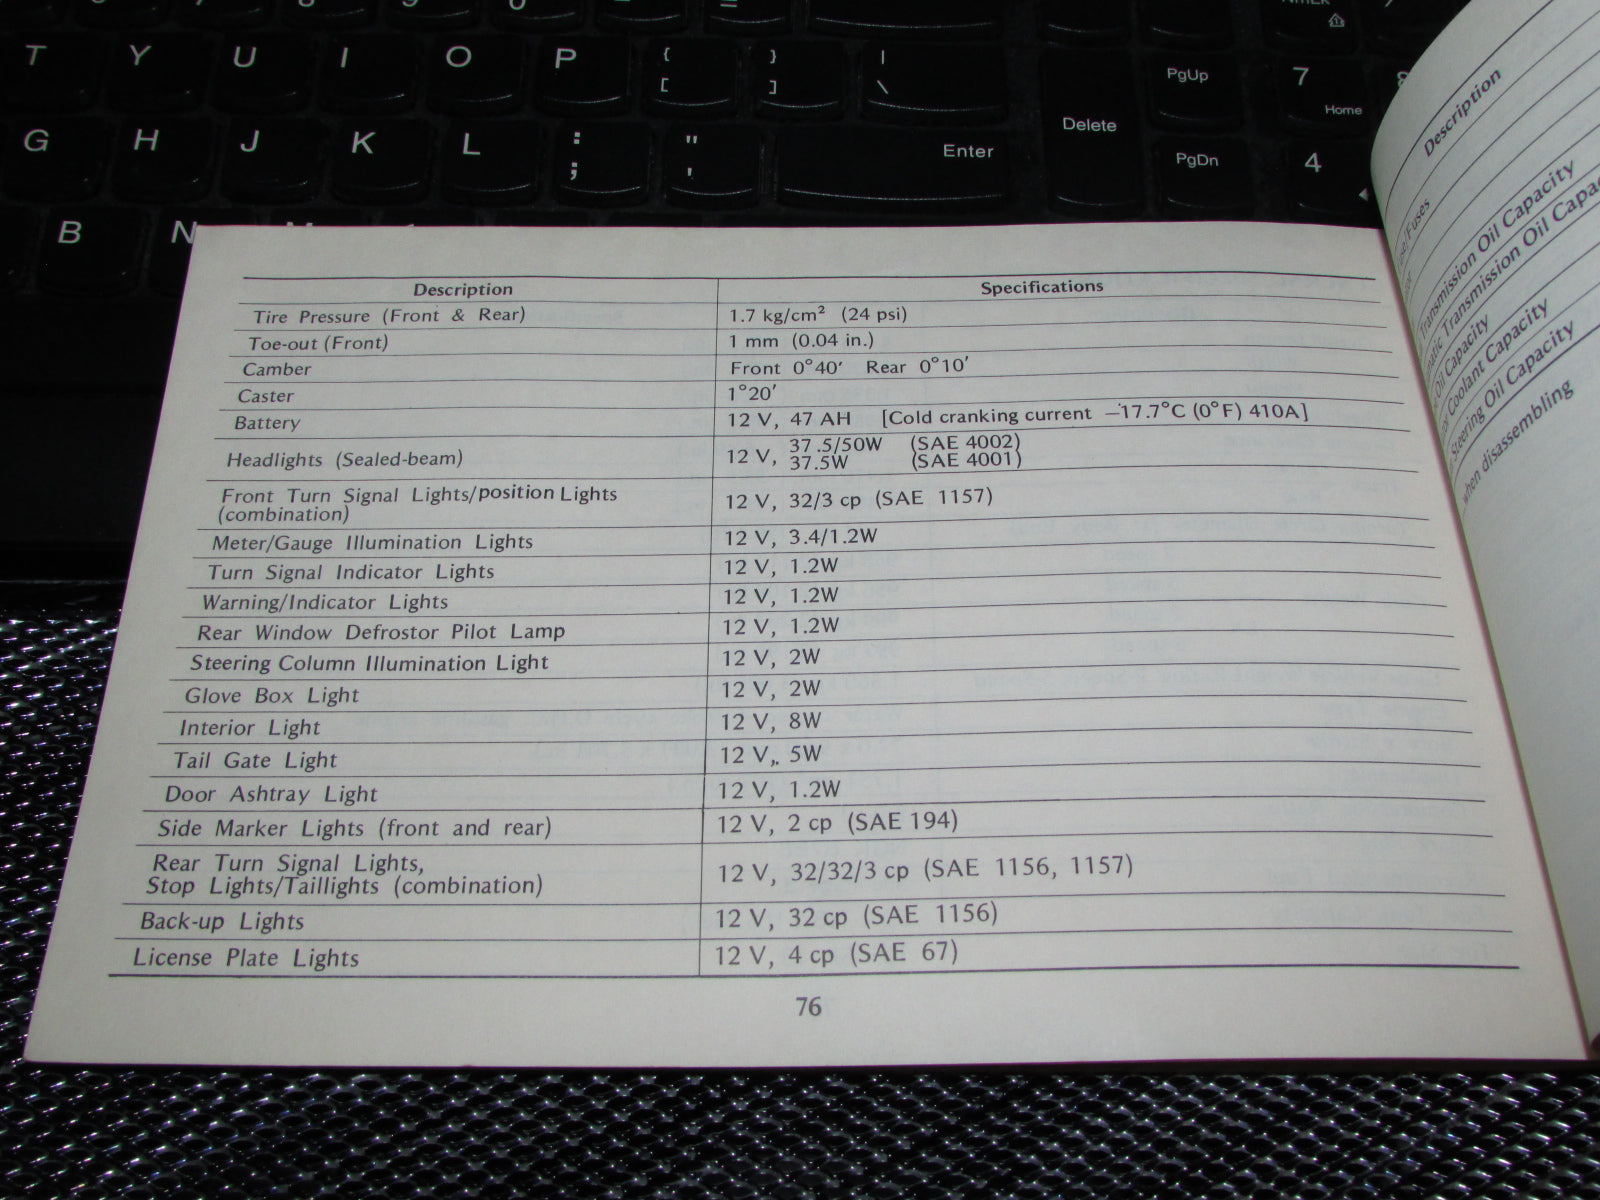 T Y U I O P { [ } ] | \ PgUp 7 Home
G H J K L : ; " ' Enter Delete PgDn 4
B N
Description Specifications
Tire Pressure (Front & Rear) 1.7 kg/cm² (24 psi)
Toe-out (Front) 1 mm (0.04 in.)
Camber Front 0°40′ Rear 0°10′
Caster 1°20′
Battery 12 V, 47 AH [Cold cranking current −17.7°C (0°F) 410A]
Headlights (Sealed-beam) 12 V, 37.5/50W (SAE 4002)
37.5W (SAE 4001)
Front Turn Signal Lights/position Lights
(combination) 12 V, 32/3 cp (SAE 1157)
Meter/Gauge Illumination Lights 12 V, 3.4/1.2W
Turn Signal Indicator Lights 12 V, 1.2W
Warning/Indicator Lights 12 V, 1.2W
Rear Window Defrostor Pilot Lamp 12 V, 1.2W
Steering Column Illumination Light 12 V, 2W
Glove Box Light 12 V, 2W
Interior Light 12 V, 8W
Tail Gate Light 12 V,. 5W
Door Ashtray Light 12 V, 1.2W
Side Marker Lights (front and rear) 12 V, 2 cp (SAE 194)
Rear Turn Signal Lights,
Stop Lights/Taillights (combination) 12 V, 32/32/3 cp (SAE 1156, 1157)
Back-up Lights 12 V, 32 cp (SAE 1156)
License Plate Lights 12 V, 4 cp (SAE 67)
76
Description
/Fuses
Transmission Oil Capacity
Transmission Oil
Oil Capacity
Coolant Capacity
Steering Oil Capacity
when disassembling